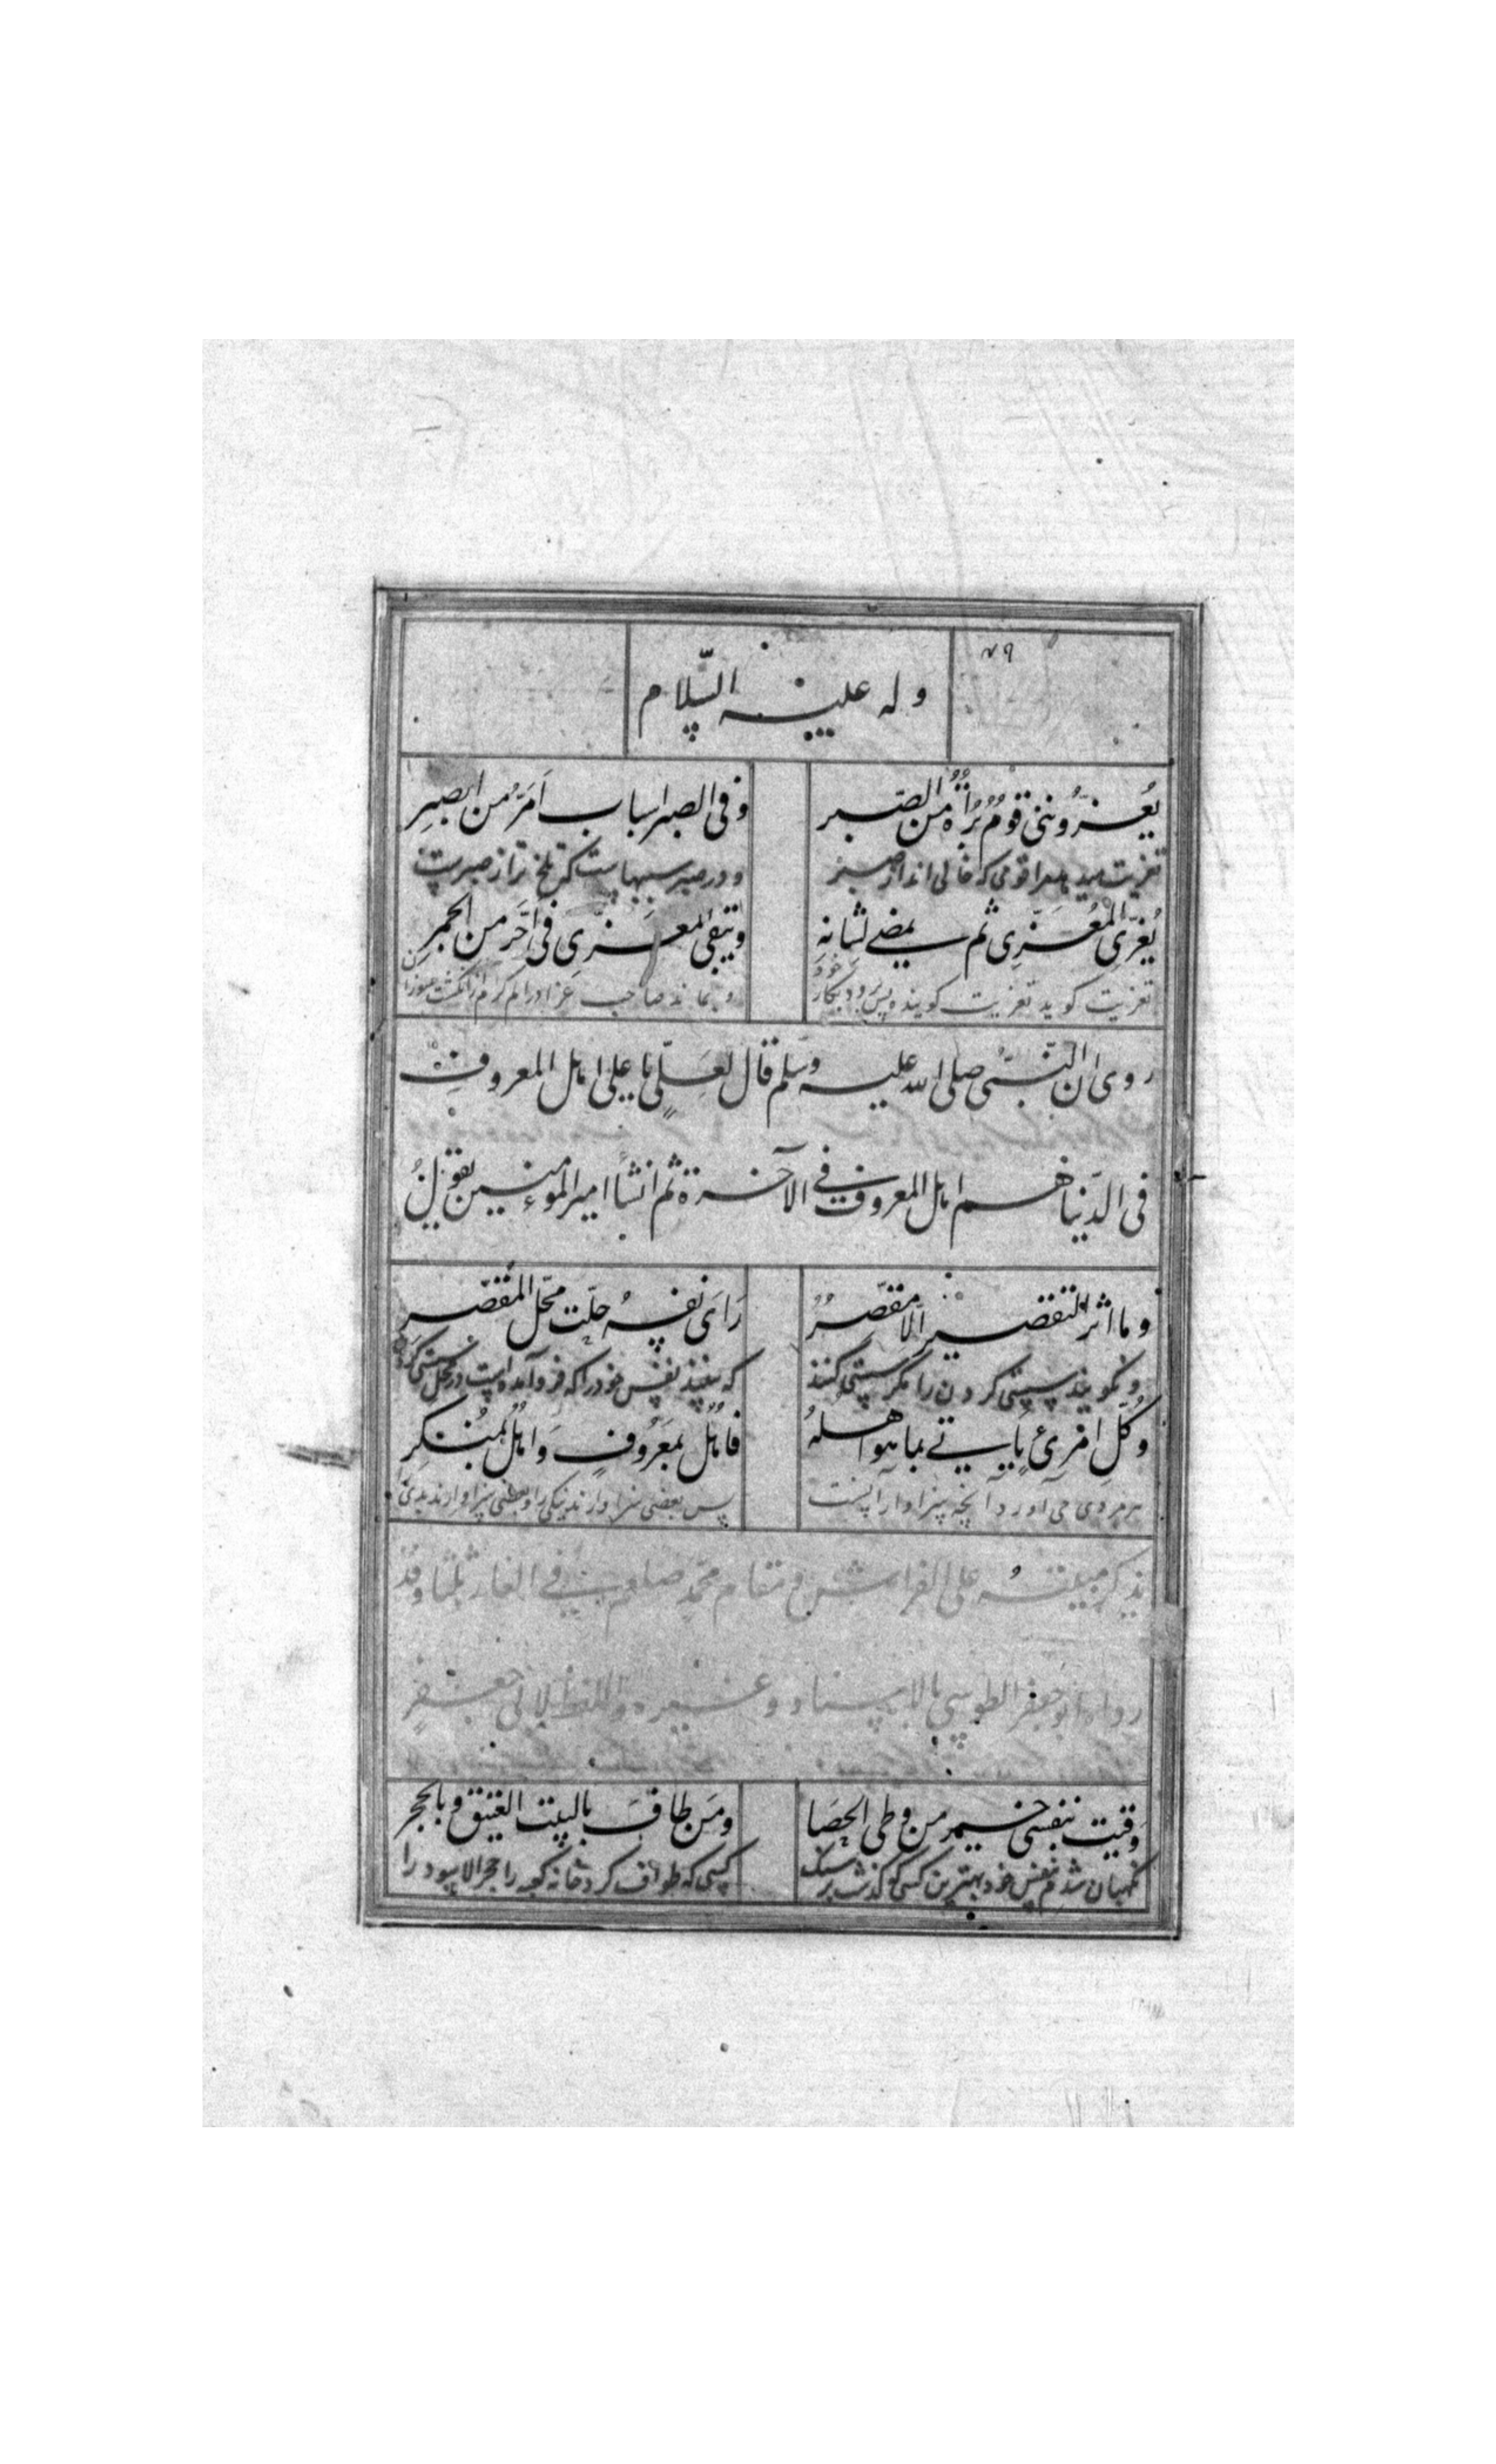 ۷۹
وله علیه السّلام
یُعزّوننی قومٌ بُراةٌ من الصّبر وفی الصبر اسباب اَمَرُّ من الصبرِ
تعزیت میدهند مرا قومی که خالی اند از صبر و در صبر سببهاست که تلخ تر از صبرست
یُعزّی المُعَزّی ثم یمضے لشانهِ ویبقی المعزّی فی اَحَرَّ من الجمرِ
تعزیت کوید تعزیت کوینده پس رود بکار خود و بماند صاحب عزا در کرم تر از انکشت
روی ان النّبیّ صلی الله علیه وسلم قال لعلیٍّ یا علی اهل المعروف
فی الدّنیا هم اهل المعروف فے الآخرة ثم انشأ امیر المؤمنین یقولُ
وما اثر التقصیر الّا مقصّرٌ رَاَی نفسهُ حلّت محّل المُقصّر
ونکویند سستی کردن را مکر سستی کننده که بیند نفس خود را که فرو آمده است در محل سستی کردن
وکُلّ امرئٍ یاتے بما هو اهلهُ فاهلٌ بمعَرُوفٍ وَاهلٌ بمُنکرِ
هر مردی می آورد آنچه سزاوار آنست پس بعضی سزاوارند نیکی را و بعضی سزاوارند بدی
یذکر مبیتهُ علی الفراش ومقام محمّد صلعم فے الغار ثلثا وقد
رواه ابو جعفر الطوسی بالاسناد وغیره واللفظ لابی جعفرٍ
وَقیت بنفسی خیر من وطی الحصَا ومَن طافَ بالبیت العتیق وبالحجر
نکهبان شدم بنفس خود بهترین کسی که کذشت بر سنک کسی که طواف کرد خانه کعبه را حجر الاسود را